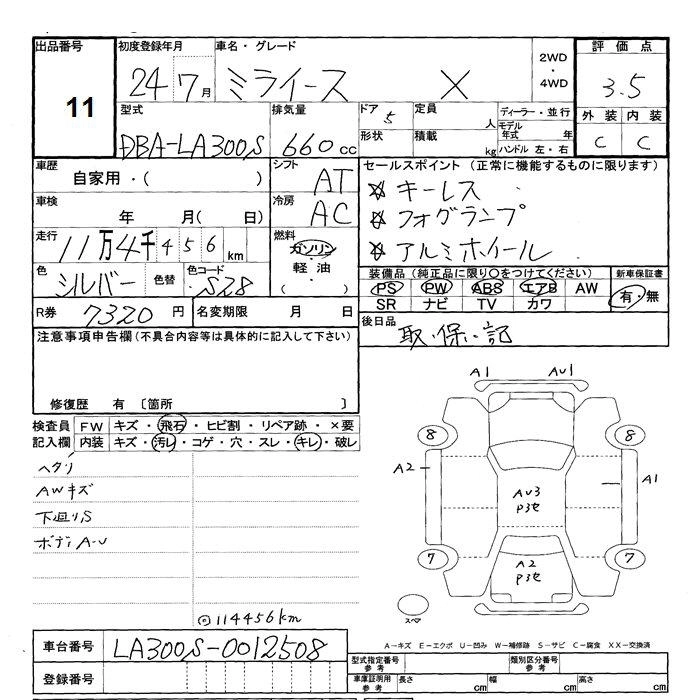 出品番号 初度登録年月 車名・グレード 2WD・4WD 評価点
11 24 7月 ミライース X 3.5
型式 排気量 ドア 5 定員 人 ディーラー・並行 外装 内装
DBA-LA300S 660cc 形状 積載 kg モデル年式 年 ハンドル 左・右 C C
車歴 シフト セールスポイント (正常に機能するものに限ります)
自家用・( ) AT ☆キーレス
車検 冷房 ☆フォグランプ
年 月( 日) AC
走行 燃料 ☆アルミホイール
11万4千456km ガソリン・軽油・( )
色 色替 色コード 装備品 (純正品に限り○をつけてください) 新車保証書
シルバー S28 PS PW ABS エアB AW 有・無
SR ナビ TV カワ
R券 7320円 名変期限 月 日 後日品
取・保・記
注意事項申告欄 (不具合内容等は具体的に記入して下さい)
修復歴 有 〔箇所 〕
検査員記入欄 FW キズ・飛石・ヒビ割・リペア跡・×要
内装 キズ・汚レ・コゲ・穴・スレ・キレ・破レ
ヘタリ
AWキズ
下廻りS
ボディA-U
◎114456km
A1 AU1
8 8
A2 A1
AU3
P3セ
7 7
A2
P3セ
スペア
A-キズ E-エクボ U-凹み W-補修跡 S-サビ C-腐食 XX-交換済
車台番号 LA300S-0012508
型式指定番号 参考 類別区分番号 参考
登録番号
車庫証明用 参考 長さ cm 幅 cm 高さ cm